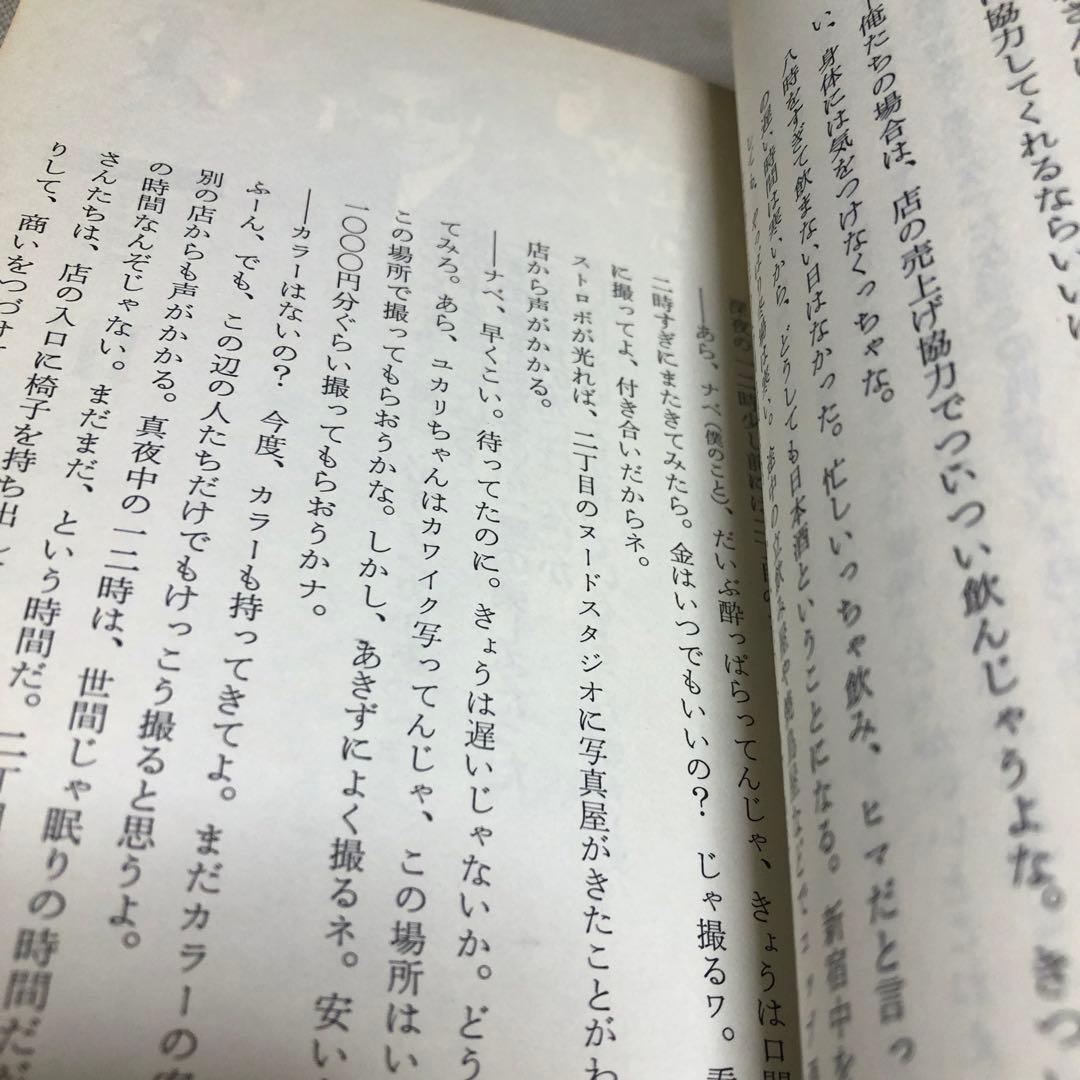 さんい
協力してくれるならいい
―俺たちの場合は、店の売上げ協力でついつい飲んじゃうよな。きつい
い、身体には気をつけなくっちゃな。
八時をすぎて飲まない日はなかった。忙しいっちゃ飲み、ヒマだと言っ
の遅い時間は寒いから、どうしても日本酒ということになる。新宿中を
――あら、ナベ（僕のこと）、だいぶ酔っぱらってんじゃ、きょうは口開
二時すぎにまたきてみたら。金はいつでもいいの？　じゃ撮るヮ。
に撮ってよ、付き合いだからネ。
ストロボが光れば、二丁目のヌードスタジオに写真屋がきたことがわ
店から声がかかる。
――ナベ、早くこい。待ってたのに。きょうは遅いじゃないか。どう
てみろ。あら、ユカリちゃんはカワイク写ってんじゃ、この場所はい
この場所で撮ってもらおうかな。しかし、あきずによく撮るネ。安い
一〇〇〇円分ぐらい撮ってもらおうかナ。
――カラーはないの？　今度、カラーも持ってきてよ。まだカラーの
ふーん、でも、この辺の人たちだけでもけっこう撮ると思うよ。
別の店からも声がかかる。真夜中の一二時は、世間じゃ眠りの時間だ
の時間なんぞじゃない。まだまだ、という時間だ。二丁目
さんたちは、店の入口に椅子を持ち出し
りして、商いをつづけ